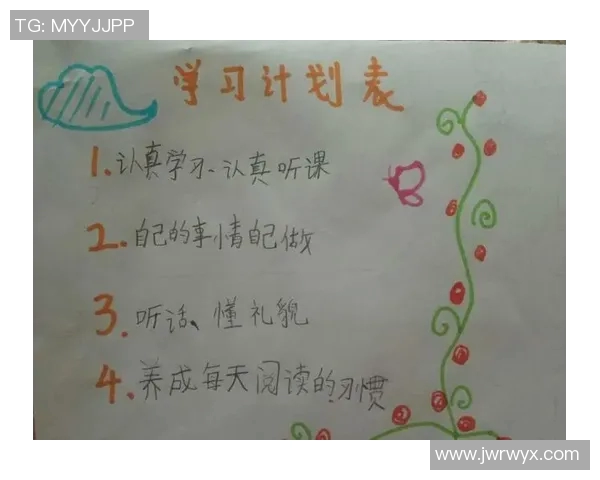 TG: MYYJJPP
学习计划表
1.认真学习、认真听课
2.自己的事情自己做
3.听话、懂礼貌
4.养成每天阅读的习惯
www.jwrwyx.com